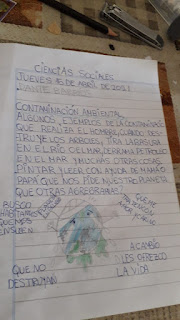 CIENCIAS SOCIALES
JUEVES 15 DE ABRIL DE 2021
CONTAMINACIÓN AMBIENTAL
ALGUNOS EJEMPLOS DE LA CONTAMINACIÓN
QUE REALIZA EL HOMBRE CUANDO DES
TRUYE LOS ARBOLES, TIRA LA BASURA
EN EL RÍO O EL MAR, DERRAMA PETROLEO
EN EL MAR Y MUCHAS OTRAS COSAS.
PINTAR Y LEER CON AYUDA DE MAMÁ O
PAPÁ QUE NOS PIDE NUESTRO PLANETA
QUE OTRAS AGREGARIAS?
BUSCO
HABITANTES
QUE ME
QUE ME
AMOR Y
QUE NO
DESTRUYAN
A CAMBIO
LES OFREZCO
LA VIDA